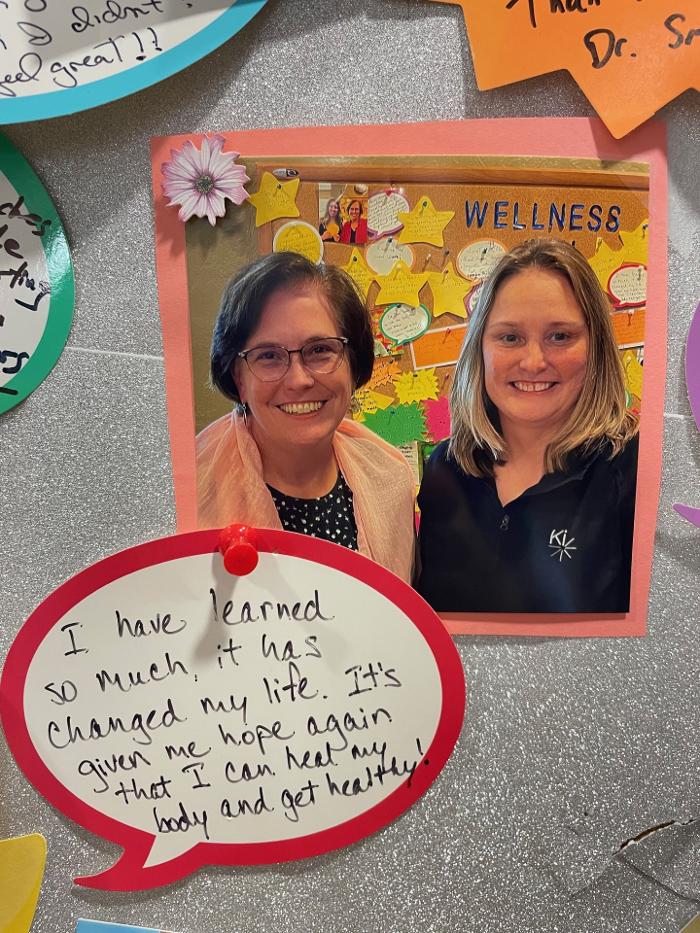 I didn't
feel great!!
Dr. Sm
WELLNESS
Ki
I have learned
so much, it has
changed my life. It's
given me hope again
that I can heal my
body and get healthy!